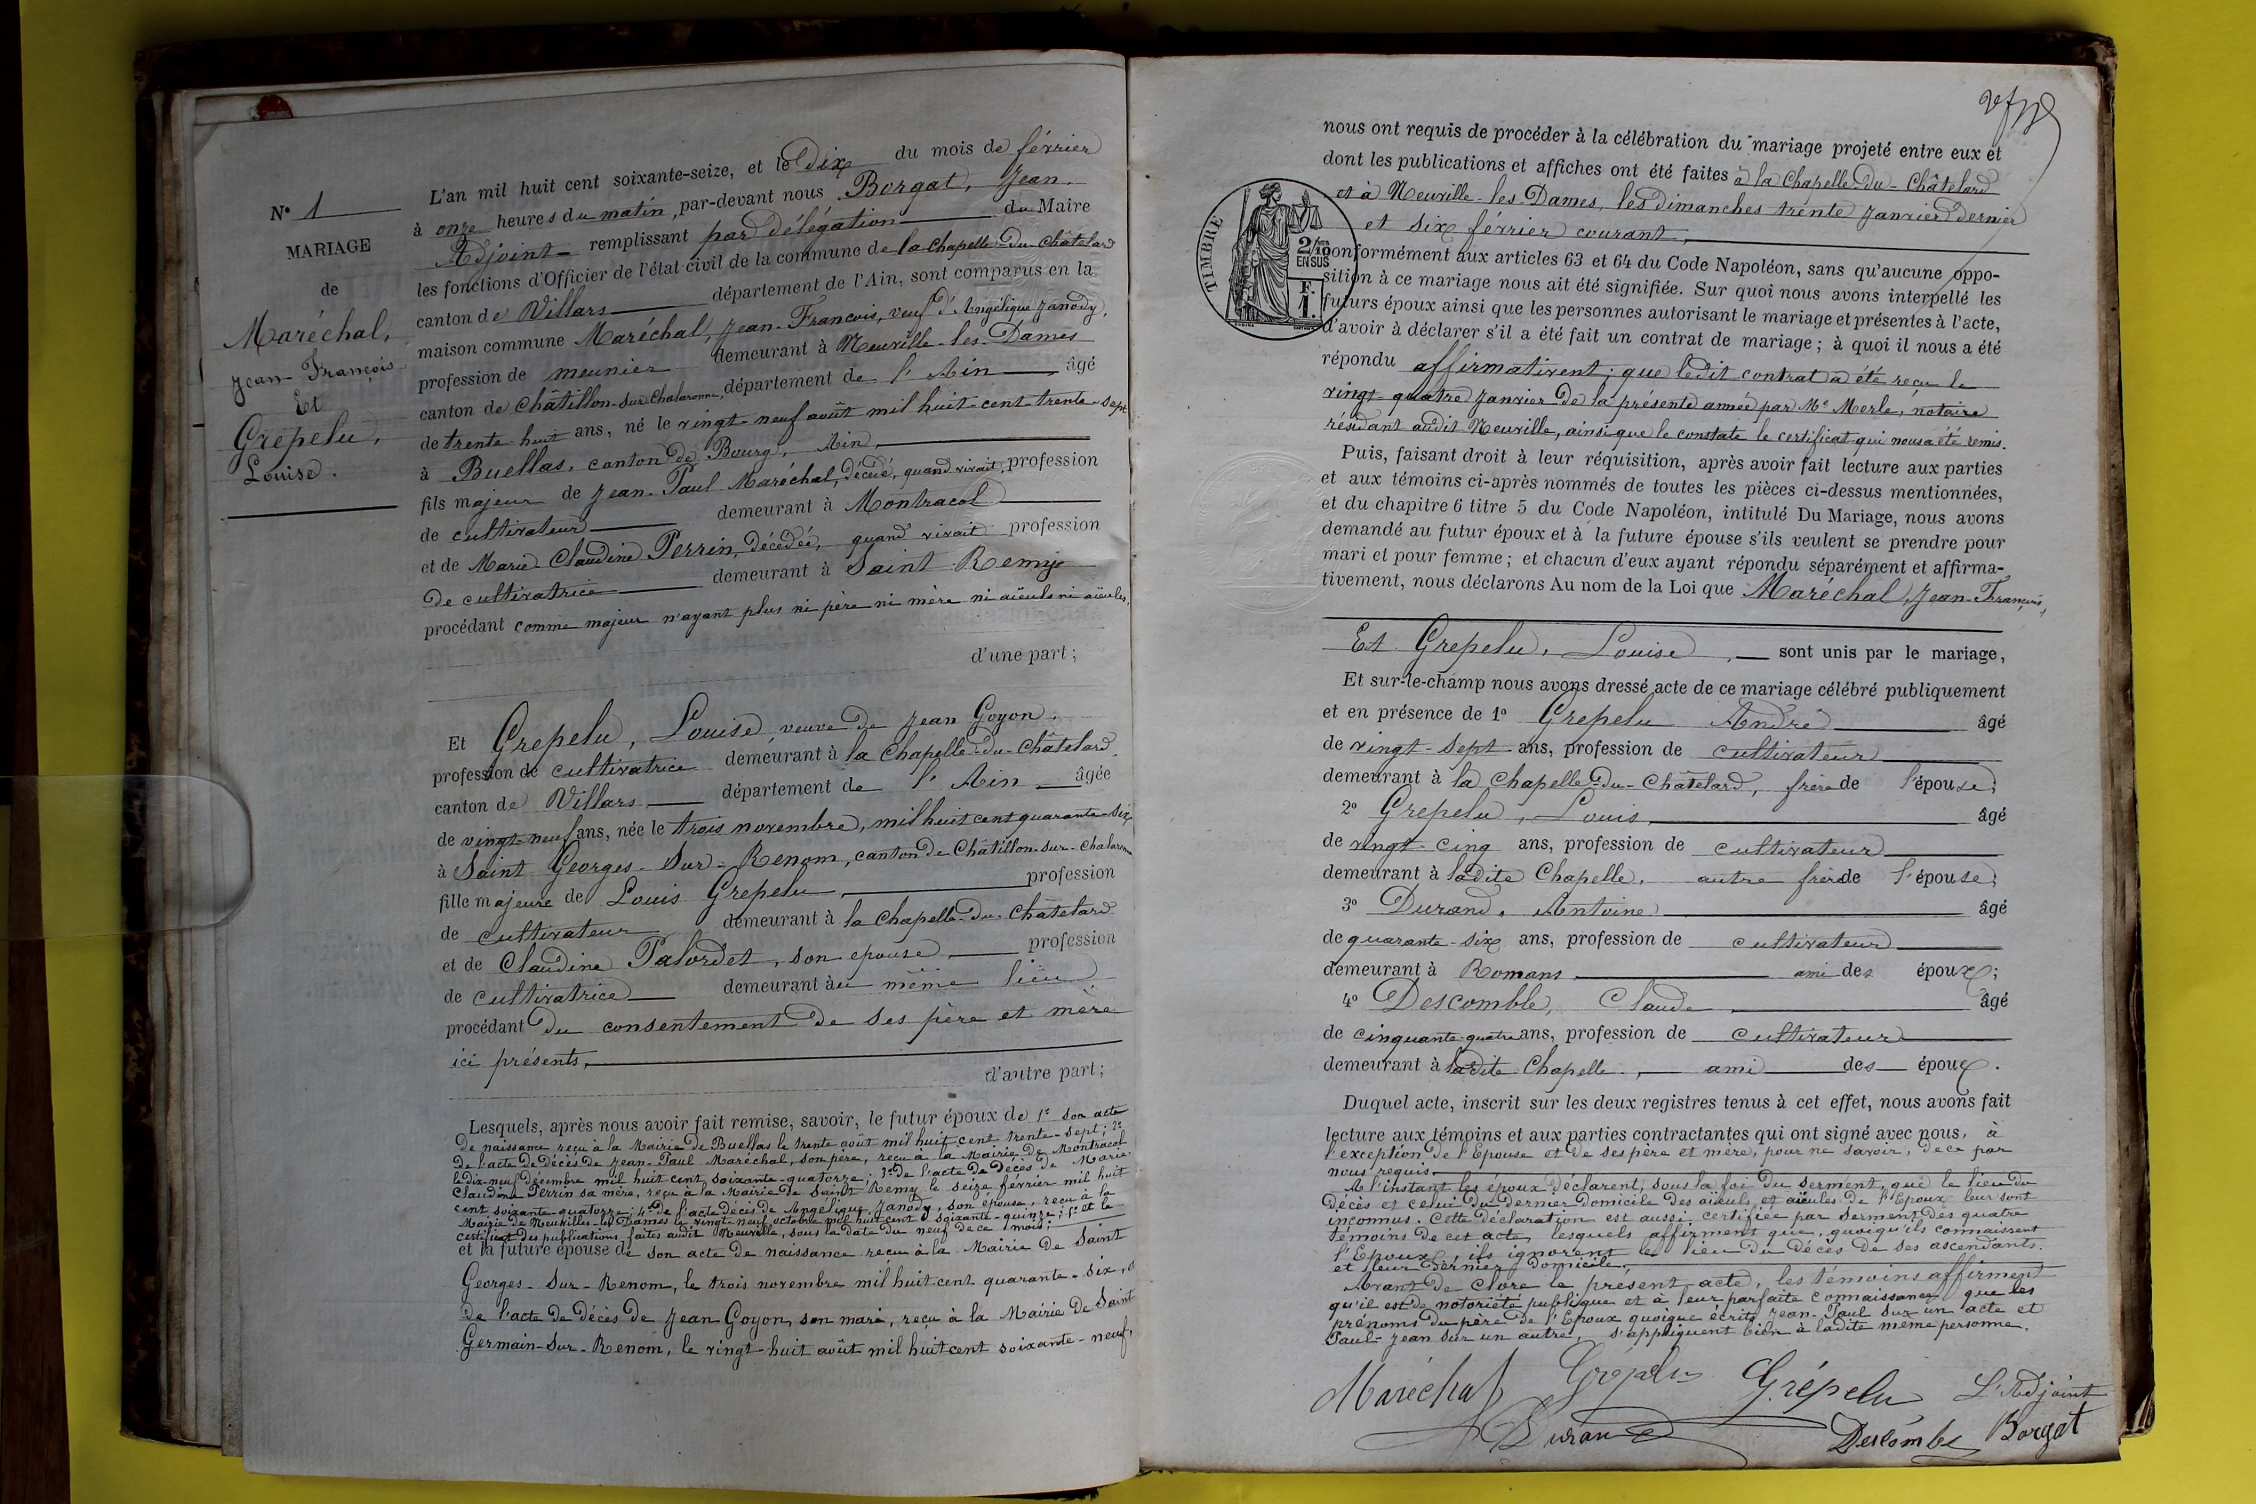 N° 1
MARIAGE
de
Maréchal,
Jean-François
Et
Grepelu,
Louise.
L'an mil huit cent soixante-seize, et le Dix du mois de février
à onze heures du matin, par-devant nous Borgat, Jean.
Adjoint remplissant par délégation du Maire
les fonctions d'Officier de l'état civil de la commune de la Chapelle-du-Châtelard
canton de Villars département de l'Ain, sont comparus en la
maison commune Maréchal, Jean-François, veuf d'Angélique Janody,
profession de meunier demeurant à Neuville-les-Dames
canton de Châtillon-sur-Chalaronne, département de l'Ain âgé
de trente-huit ans, né le vingt-neuf août mil huit-cent-trente-sept
à Buellas, canton de Bourg, Ain,
fils majeur de Jean-Paul Maréchal, décédé, quand vivait, profession
de cultivateur demeurant à Montracol
et de Marie Claudine Perrin, décédée, quand vivait profession
de cultivatrice demeurant à Saint Remy
procédant comme majeur n'ayant plus ni père ni mère ni aïeuls ni aïeules,
d'une part;
Et Grepelu, Louise, veuve de Jean Goyon,
profession de cultivatrice demeurant à la Chapelle-du-Châtelard
canton de Villars département de l'Ain âgée
de vingt-neuf ans, née le trois novembre, mil huit cent quarante-six
à Saint Georges-Sur-Renom, canton de Châtillon-sur-Chalaronne
fille majeure de Louis Grepelu, profession
de cultivateur demeurant à la Chapelle-du-Châtelard
et de Claudine Palordet, son epouse, profession
de cultivatrice demeurant au même lieu
procédant du consentement de ses père et mère
ici présents,
d'autre part;
Lesquels, après nous avoir fait remise, savoir, le futur époux de 1° son acte
de naissance reçu à la Mairie de Buellas le trente août mil huit cent trente-sept; 2°
de l'acte de décès de Jean-Paul Maréchal, son père, reçu à la Mairie de Montracol
le dix-neuf décembre mil huit cent soixante-quatorze; 3° de l'acte de décès de Marie
Claudine Perrin sa mère, reçu à la Mairie de Saint Remy le seize février mil huit
cent soixante-quatorze; 4° de l'acte décès de Angélique Janody, son épouse, reçu à la
Mairie de Neuville-les-Dames le vingt-neuf octobre mil huit cent soixante-quinze; 5° et le
certificat des publications faites audit Neuville, sous la date du neuf de ce mois;
et la future épouse de son acte de naissance reçu à la Mairie de Saint
Georges-Sur-Renom, le trois novembre mil huit cent quarante-six,
de l'acte de décès de Jean Goyon, son mari, reçu à la Mairie de Saint
Germain-Sur-Renom, le vingt-huit août mil huit cent soixante-neuf,
nous ont requis de procéder à la célébration du mariage projeté entre eux et
dont les publications et affiches ont été faites à la Chapelle-du-Châtelard
et à Neuville-les-Dames, les dimanches trente Janvier dernier
et six février courant,
TIMBRE
2/10 EN SUS
F. 1.
conformément aux articles 63 et 64 du Code Napoléon, sans qu'aucune oppo-
sition à ce mariage nous ait été signifiée. Sur quoi nous avons interpellé les
futurs époux ainsi que les personnes autorisant le mariage et présentes à l'acte,
d'avoir à déclarer s'il a été fait un contrat de mariage; à quoi il nous a été
répondu affirmativent; que ledit contrat a été reçu le
vingt-quatre Janvier de la présente année par Me Merle, notaire
résidant audit Neuville, ainsi que le constate le certificat qui nous a été remis.
Puis, faisant droit à leur réquisition, après avoir fait lecture aux parties
et aux témoins ci-après nommés de toutes les pièces ci-dessus mentionnées,
et du chapitre 6 titre 5 du Code Napoléon, intitulé Du Mariage, nous avons
demandé au futur époux et à la future épouse s'ils veulent se prendre pour
mari et pour femme; et chacun d'eux ayant répondu séparément et affirma-
tivement, nous déclarons Au nom de la Loi que Maréchal, Jean-François,
Et Grepelu, Louise, sont unis par le mariage,
Et sur-le-champ nous avons dressé acte de ce mariage célébré publiquement
et en présence de 1° Grepelu André âgé
de vingt-sept ans, profession de cultivateur
demeurant à la Chapelle-du-Châtelard, frère de l'épouse;
2° Grepelu, Louis, âgé
de vingt-cinq ans, profession de cultivateur
demeurant à ladite Chapelle, autre frère de l'épouse;
3° Durand, Antoine âgé
de quarante-six ans, profession de cultivateur
demeurant à Romans ami des époux;
4° Descomble, Claude âgé
de cinquante-quatre ans, profession de cultivateur
demeurant à ladite Chapelle, ami des époux.
Duquel acte, inscrit sur les deux registres tenus à cet effet, nous avons fait
lecture aux témoins et aux parties contractantes qui ont signé avec nous, à
l'exception de l'Epouse et de ses père et mère, pour ne savoir, de ce par
nous requis
A l'instant les époux déclarent, sous la foi du serment, que le lieu du
décès et celui du dernier domicile des aïeuls et aïeules de l'Epoux leur sont
inconnus. Cette déclaration est aussi certifiée par serment des quatre
témoins de cet acte, lesquels affirment que, quoiqu'ils connaissent
l'Epoux, ils ignorent le lieu du décès de ses ascendants
et leur dernier domicile,
Avant de clore le présent acte, les témoins affirment
qu'il est de notoriété publique et à leur parfaite connaissance que les
prénoms du père de l'Epoux quoique écrits Jean-Paul sur un acte et
Paul-Jean sur un autre, s'appliquent bien à ladite même personne.
Maréchal Grépelu Grépelu L'Adjoint
Durand Descombe Borgat